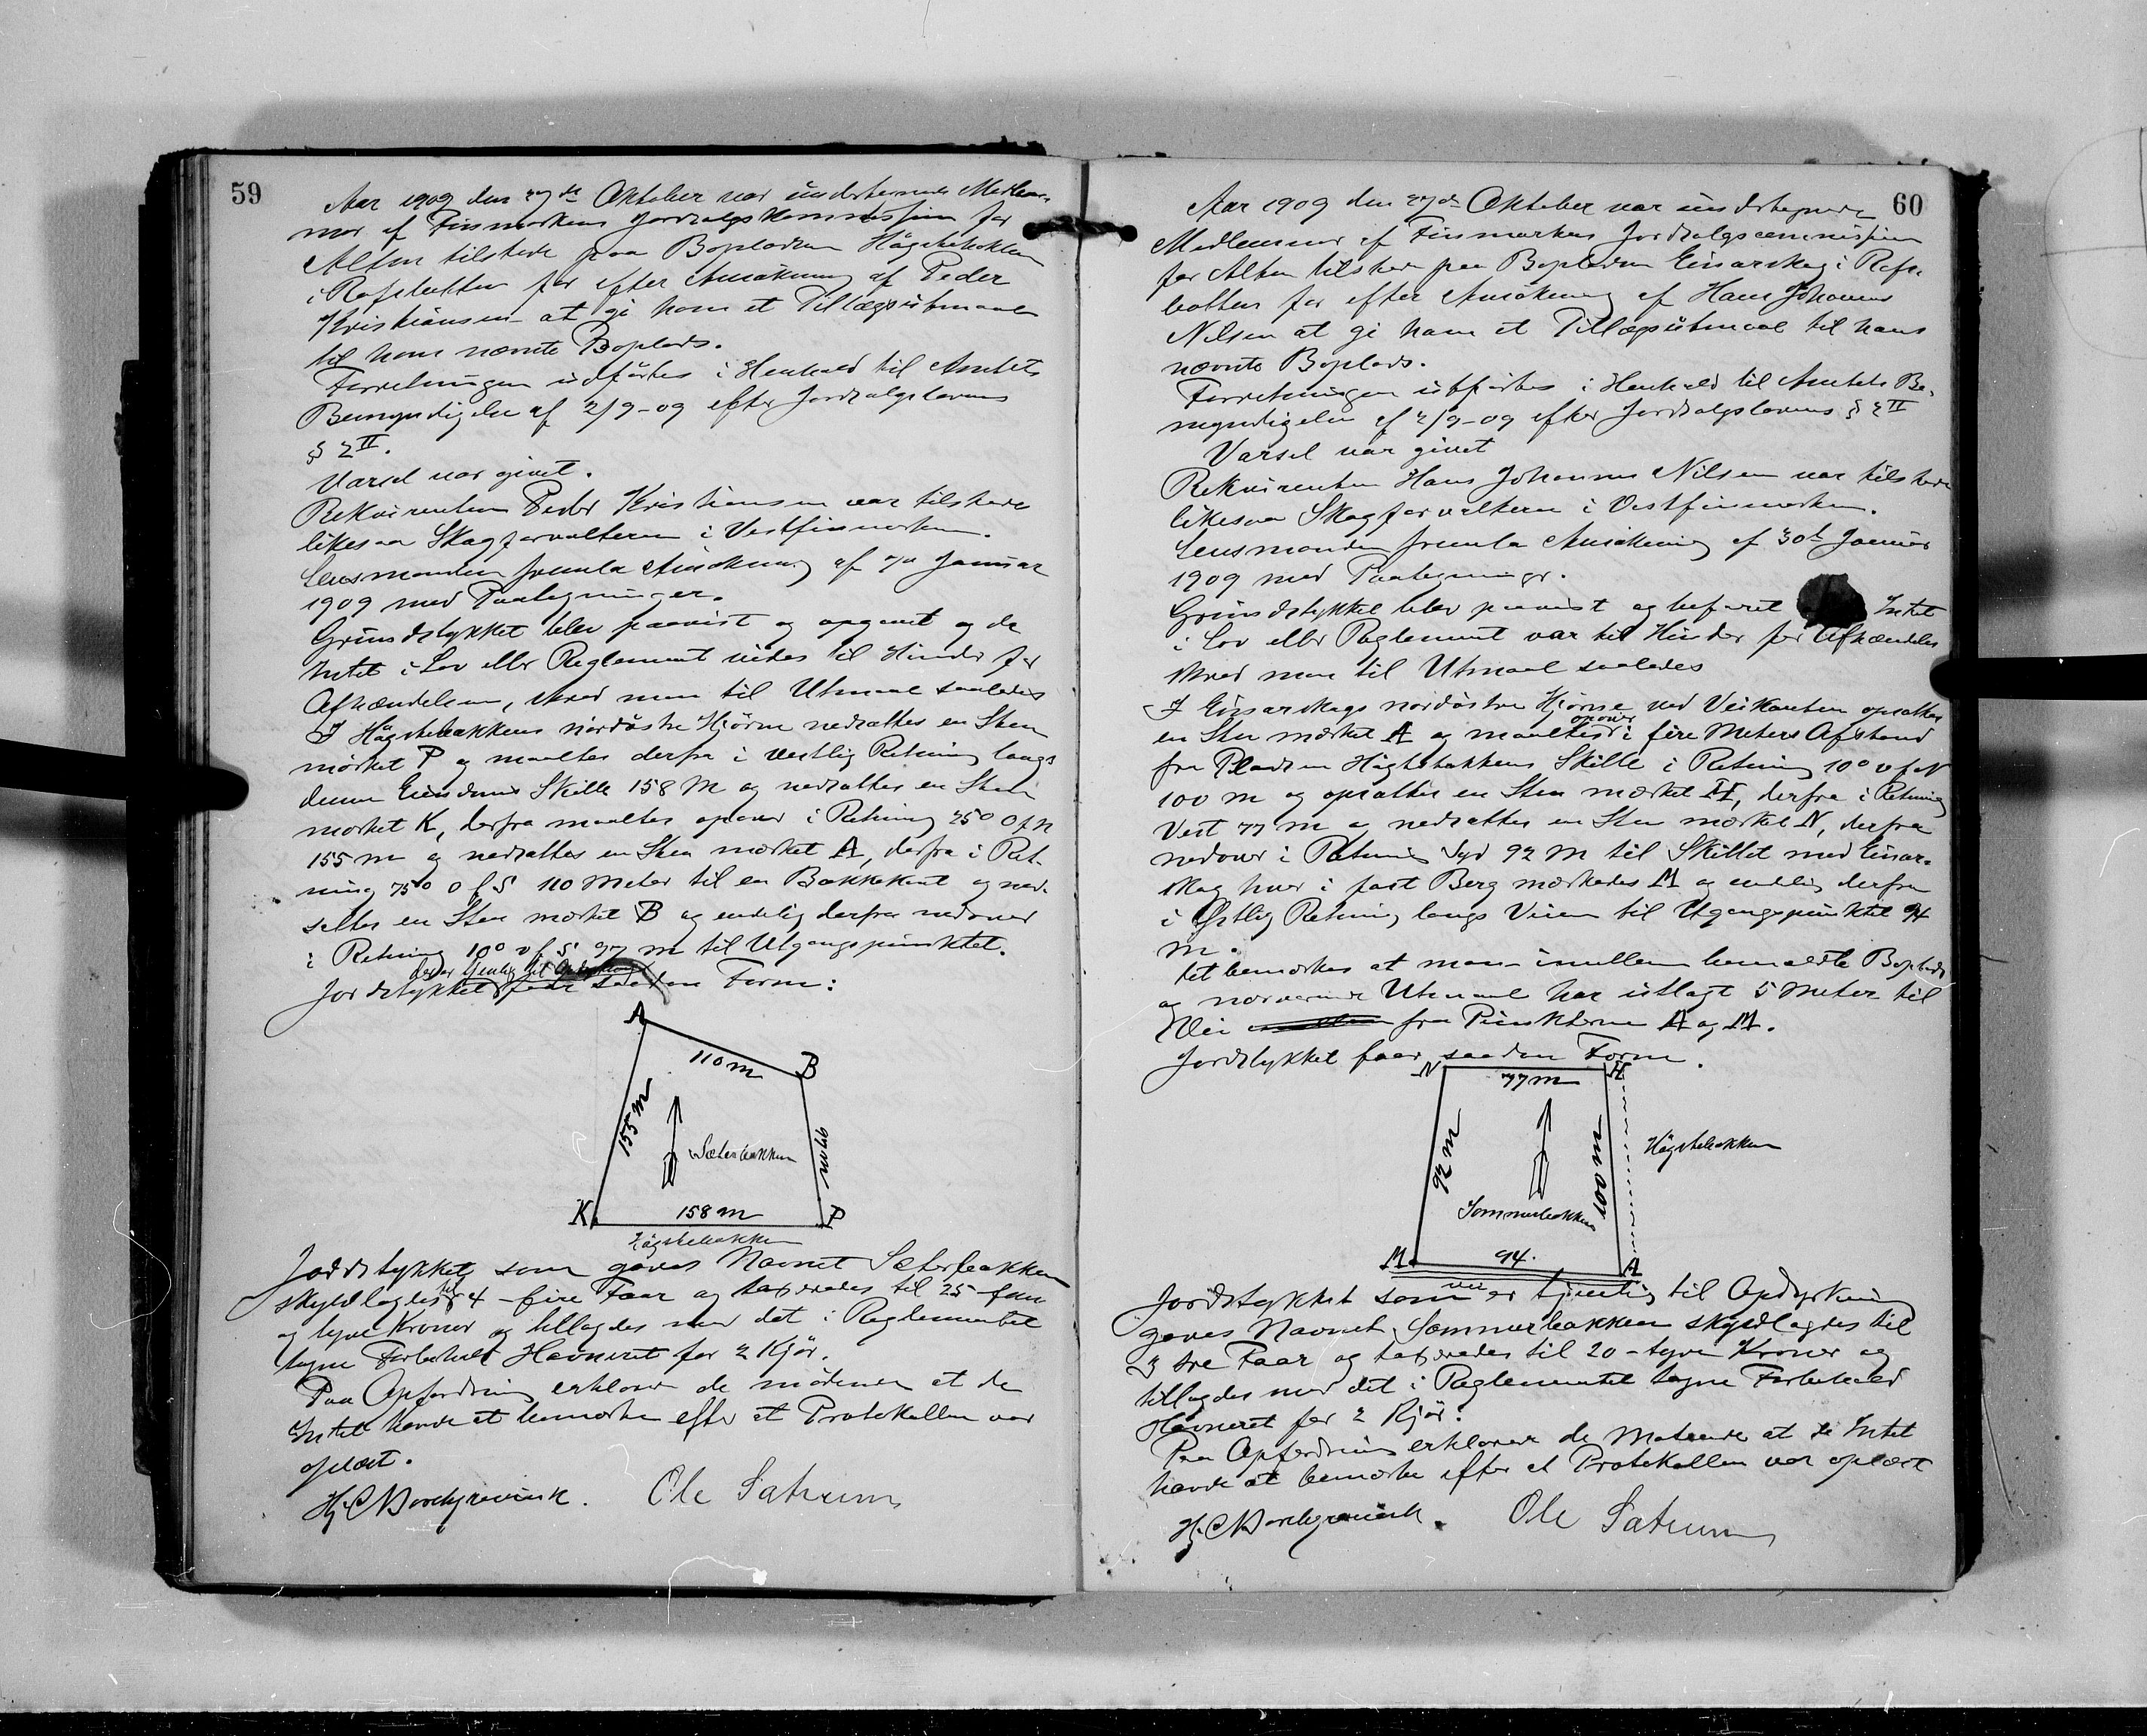 59
Aar 1909 den 27de Oktober var undertegnede Medlem-
mer af Finmarkens Jordsalgskommission for
Alten tilstede paa Bopladsen Högstebakken
i Rafsbotten for efter Ansökning af Peder
Kristiansen at gi ham et Tillægsutmaal
til hans nævnte Boplads.
Forretningen udförtes i Henhold til Amtets
Bemyndigelse af 2/9-09 efter Jordsalgslovens
§ 2 II.
Varsel var givet.
Rekvirenten Peder Kristiansen var tilstede
likesaa Skogforvalteren i Vestfinmarken.
Lensmanden fremla Ansökning af Januar
1909 med Paategninger.
Grundstykket blev paavist og opgaaet og da
Intet i Lov eller Reglement vides til Hinder for
Afhændelsen, skred man til Utmaal saaledes
I Högstebakkens nordöstre Hjörne nedsattes en Sten
mærket P og maaltes derfra i vestlig Retning langs
denne Eiendoms Skille 158 M og nedsattes en Sten
mærket K, derfra maaltes opover i Retning 25° O f N
155 m og nedsattes en Sten mærket A, derfra i Ret-
ning 75° O f S 110 Meter til en Bakkekant og ned-
sattes en Sten mærket B og endelig derfra nedover
i Retning 10° v f S 97 m til Utgangspunktet.
der er tjenlig til Opdyrkning
Jordstykket faar saadan Form:
A
110 m
B
155 m
Sæterbakken
97 m
K
158 m
P
Högstebakken
Jordstykket som gaves Navnet Sæterbakken
skyldlagdes til 4 - fire Faar og taxeredes til 25 - fem
og tyve Kroner og tillagdes med det i Reglementet
tagne Forbehold Havneret for 2 Kjör.
Paa Opfordring erklærer de mödende at de
Intet havde at bemærke efter at Protokollen var
oplæst.
Hj. C Borchgrevink. Ole Sætrum
60
Aar 1909 den 27de Oktober var undertegnede
Medlemmer af Finmarkens Jordsalgscommission
for Alten tilstede paa Bopladsen Einarskog i Rafs-
botten for efter Ansökning af Hans Johannes
Nilsen at gi ham et Tillægsutmaal til hans
nævnte Boplads.
Forretningen utförtes i Henhold til Amtets Be-
myndigelse af 2/9-09 efter Jordsalgslovens § 2 II
Varsel var givet
Rekvirenten Hans Johannes Nilsen var tilstede
likesaa Skogforvalteren i Vestfinmarken.
Lensmanden fremla Ansökning af 30te Januar
1909 med Paategninger.
Grundstykket blev paavist og befaret Intet
i Lov eller Reglement var til Hinder for Afhændelse
skred man til Utmaal saaledes
I Einarskogs nordöstre Hjörne ved Veikanten opsattes
en Sten mærket A og maaltes opover i fire Meters Afstand
fra Pladsen Högstebakkens Skille i Retning 10° v f N
100 m og opsattes en Sten mærket H, derfra i Retning
Vest 77 m og nedsattes en Sten mærket N, derfra
nedover i Retning Syd 92 M til Skillet med Einar-
skog hvor i fast Berg mærkedes M og endelig derfra
i Østlig Retning langs Veien til Utgangspunktet 94
m.
Det bemærkes at man imellem bemeldte Boplads
og nærværende Utmaal har utlagt 5 Meter til
Vei imellem fra Punkterne A og M.
Jordstykket faar saadan Form.
N
77 m
H
92 m
100 m
Högstebakken
Sommerbakken
M
94.
A
vei
Jordstykket som er tjenlig til Opdyrkning
gaves Navnet Sommerbakken skyldlagdes til
3 tre Faar og taxeredes til 20 - tyve Kroner og
tillagdes med det i Reglementet tagne Forbehold
Havneret for 2 Kjör.
Paa Opfordring erklærer de Mötende at de Intet
havde at bemærke efter at Protokollen var oplæst
Hj. C Borchgrevink. Ole Sætrum